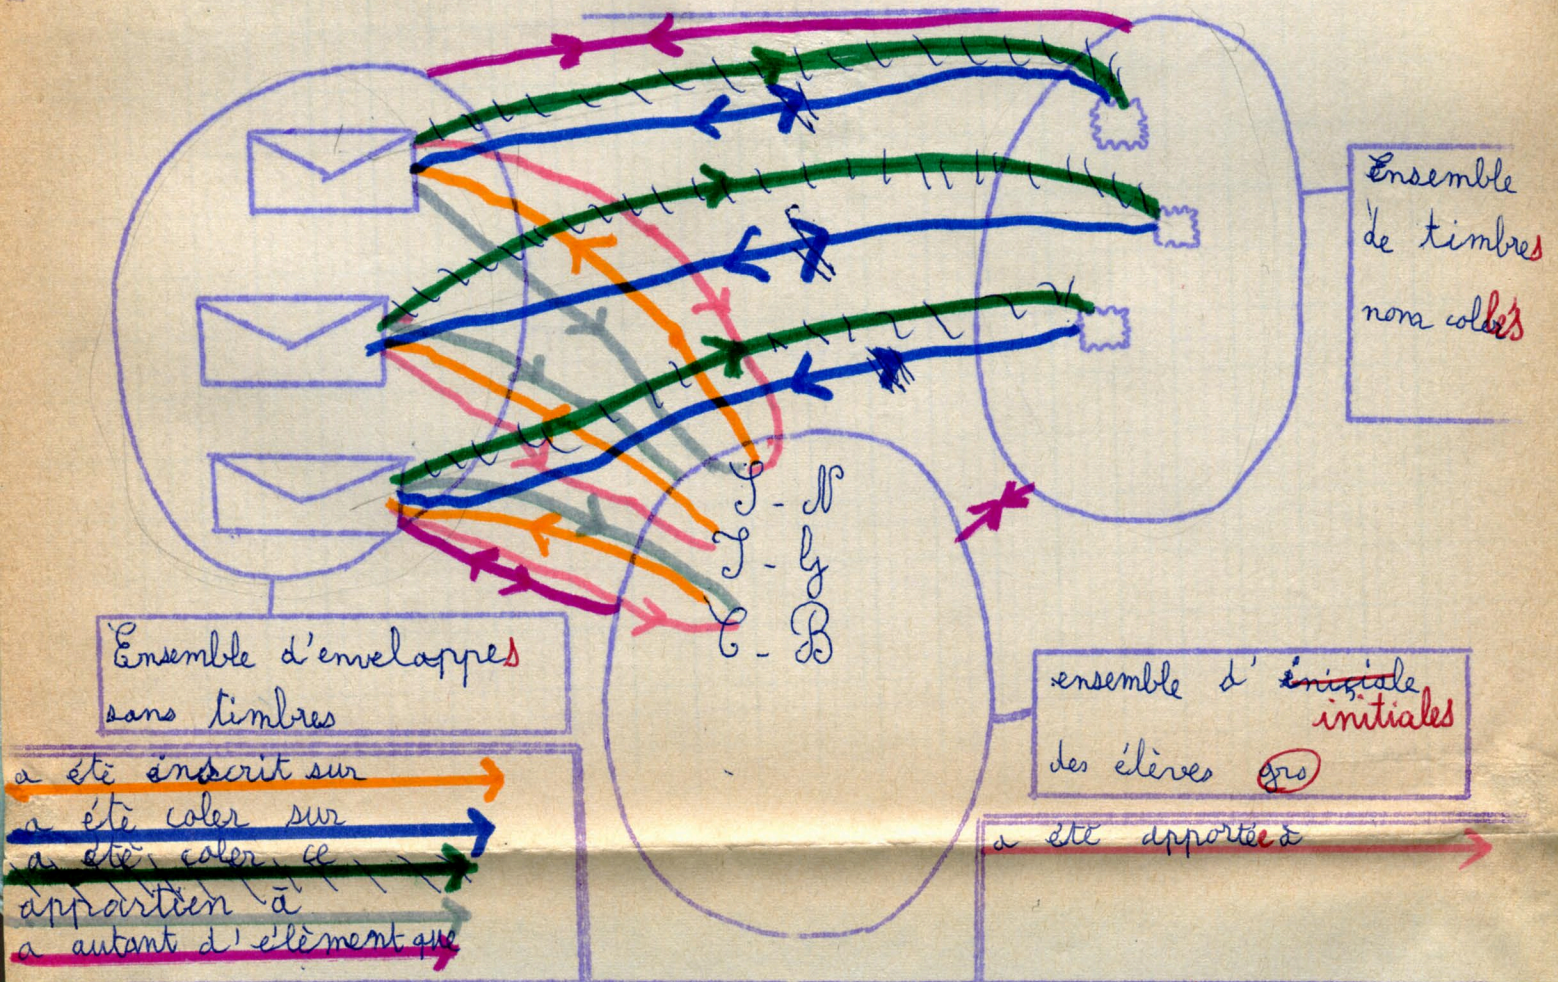 Ensemble
de timbres
non collés
J - N
J - G
C - B
Ensemble d'enveloppes
sans timbres
ensemble d' iniciale
initiales
des élèves gro
a été inscrit sur
a été coler sur
a été coler ce
appartien à
a autant d'élèment que
a été apportée à